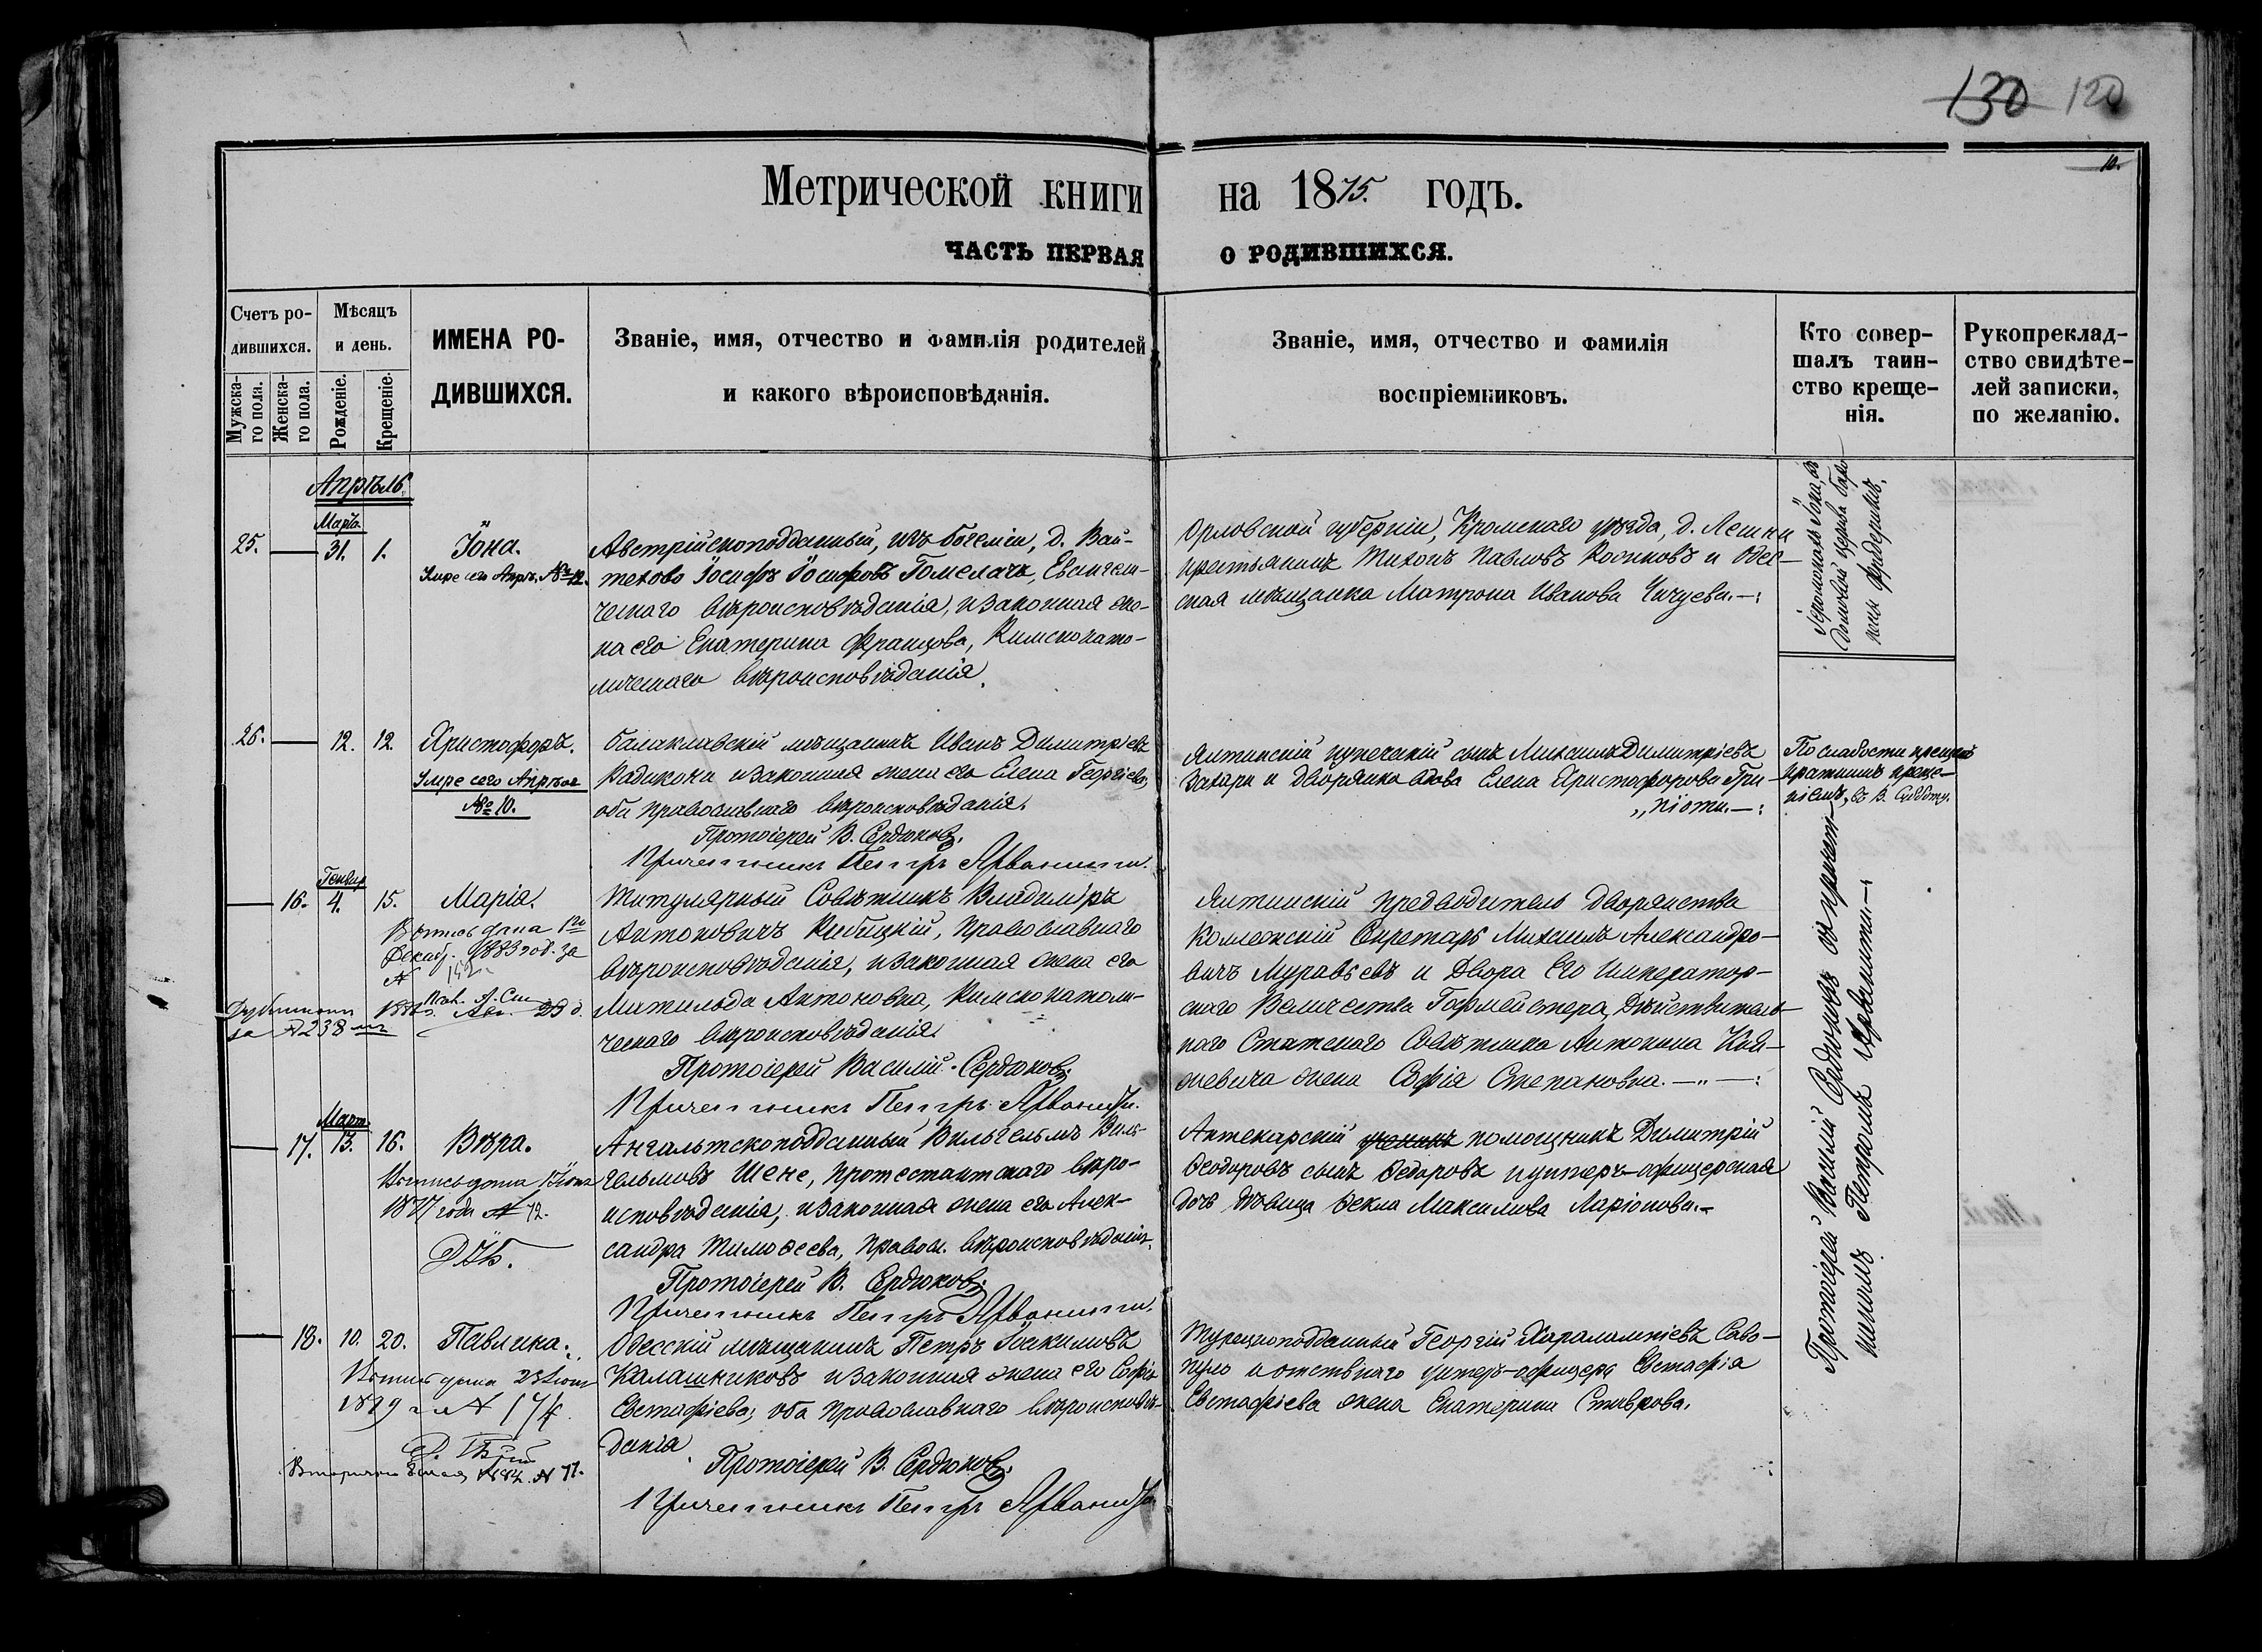 130 120
10.
Метрической книги на 1875. годъ.
ЧАСТЬ ПЕРВАЯ О РОДИВШИХСЯ.
Счетъ ро-
дившихся.
Мужска-
го пола.
Женска-
го пола.
Мѣсяцъ
и день.
Рожденіе.
Крещеніе.
ИМЕНА РО-
ДИВШИХСЯ.
Званіе, имя, отчество и фамилія родителей
и какого вѣроисповѣданія.
Званіе, имя, отчество и фамилія
воспріемниковъ.
Кто совер-
шалъ таин-
ство креще-
нія.
Рукопреклад-
ство свидѣте-
лей записки,
по желанію.
Апрѣль
Марта
25. — 31. 1.
Іона.
Умре сего Апр. № 12.
Австрійскоподданный, изъ Богеміи, д. Вой-
техово Іосифъ Іосифовъ Гомелачъ, Евангели-
ческаго вѣроисповѣданія, и законная же-
на его Екатерина Францова, Римскокато-
лическаго вѣроисповѣданія.
Орловской губерніи, Кромскаго уѣзда, д. Лешни
крестьянинъ Тихонъ Павловъ Косиковъ и Одес-
ская мѣщанка Матрона Иванова Чичуева.—:
Іеромонахъ Іона, въ
домичной церкви баро-
несы Фридериксъ.
26. — 12. 12.
Христофоръ.
Умре сего Апрѣля
№ 10.
Балаклавскій мѣщанинъ Иванъ Димитріевъ
Кадикони и законная жена его Елена Георгіева,
оба православнаго вѣроисповѣданія.
Протоіерей В. Сердюковъ.
Причетникъ Петръ Арванити.
Ялтинскій купеческій сынъ Михаилъ Димитріевъ
Захари и Дворянка вдова Елена Христофорова Гри-
„ піоти.—:
По слабости крещенъ
краткимъ креще-
ніемъ, въ В. Субботу.
Генвар
— 16. 4. 15.
Марія.
Выпись дана 12го
Декабр. 1883 год. за
№ 142
Дубликатъ 23 д.
за № 238 мъ
Титулярный Совѣтникъ Владиміръ
Антоновичъ Рибицкій, Православнаго
вѣроисповѣданія, и законная жена его
Матильда Антоновна, Римскокатоли-
ческаго вѣроисповѣданія.
Протоіерей Василій Сердюковъ
Причетникъ Петръ Арванити.
Ялтинскій предводитель дворянства
Коллежскій Секретарь Михаилъ Александро-
вичъ Муравьевъ и Двора Его Император-
скаго Величества Гофмейстера, Дѣйствитель-
наго Статскаго Совѣтника Антонина Кня-
жевича жена Софія Степановна.—„—:
Протоіерей Василій Сердюковъ съ причет-
никомъ Петромъ Арванити.—:
Марта
— 17. 13. 16.
Вѣра.
Выпись дана
1877 года № 72.
Ангальтскоподданный Вильгельмъ Виль-
гельмовъ Шене, Протестантскаго вѣро-
исповѣданія, и законная жена его Алек-
сандра Тимоѳеева, правосл. вѣроисповѣданія.
Протоіерей В. Сердюковъ
Причетникъ Петръ Арванити.
Аптекарскій ученикъ помощникъ Димитрій
Ѳеодоровъ сынъ Ѳедоровъ и унтеръ-офицерская
дочь дѣвица Ѳекла Максимова Ларіонова.—
— 18. 10. 20.
Павлина.
Выпись дана 23
1879 г. № 174.
Вторично 8 мая 1882. № 77.
Одесскій мѣщанинъ Петръ Іоакимовъ
Калашниковъ и законная жена его Софія
Евстафіева, оба православнаго вѣроисповѣ-
данія.
Протоіерей В. Сердюковъ
Причетникъ Петръ Арванити
Турецкоподданный Георгій Харалампіевъ Саво-
пуло и отставнаго унтеръ-офицера Евстафія
Евстафіева жена Екатерина Ставрова.